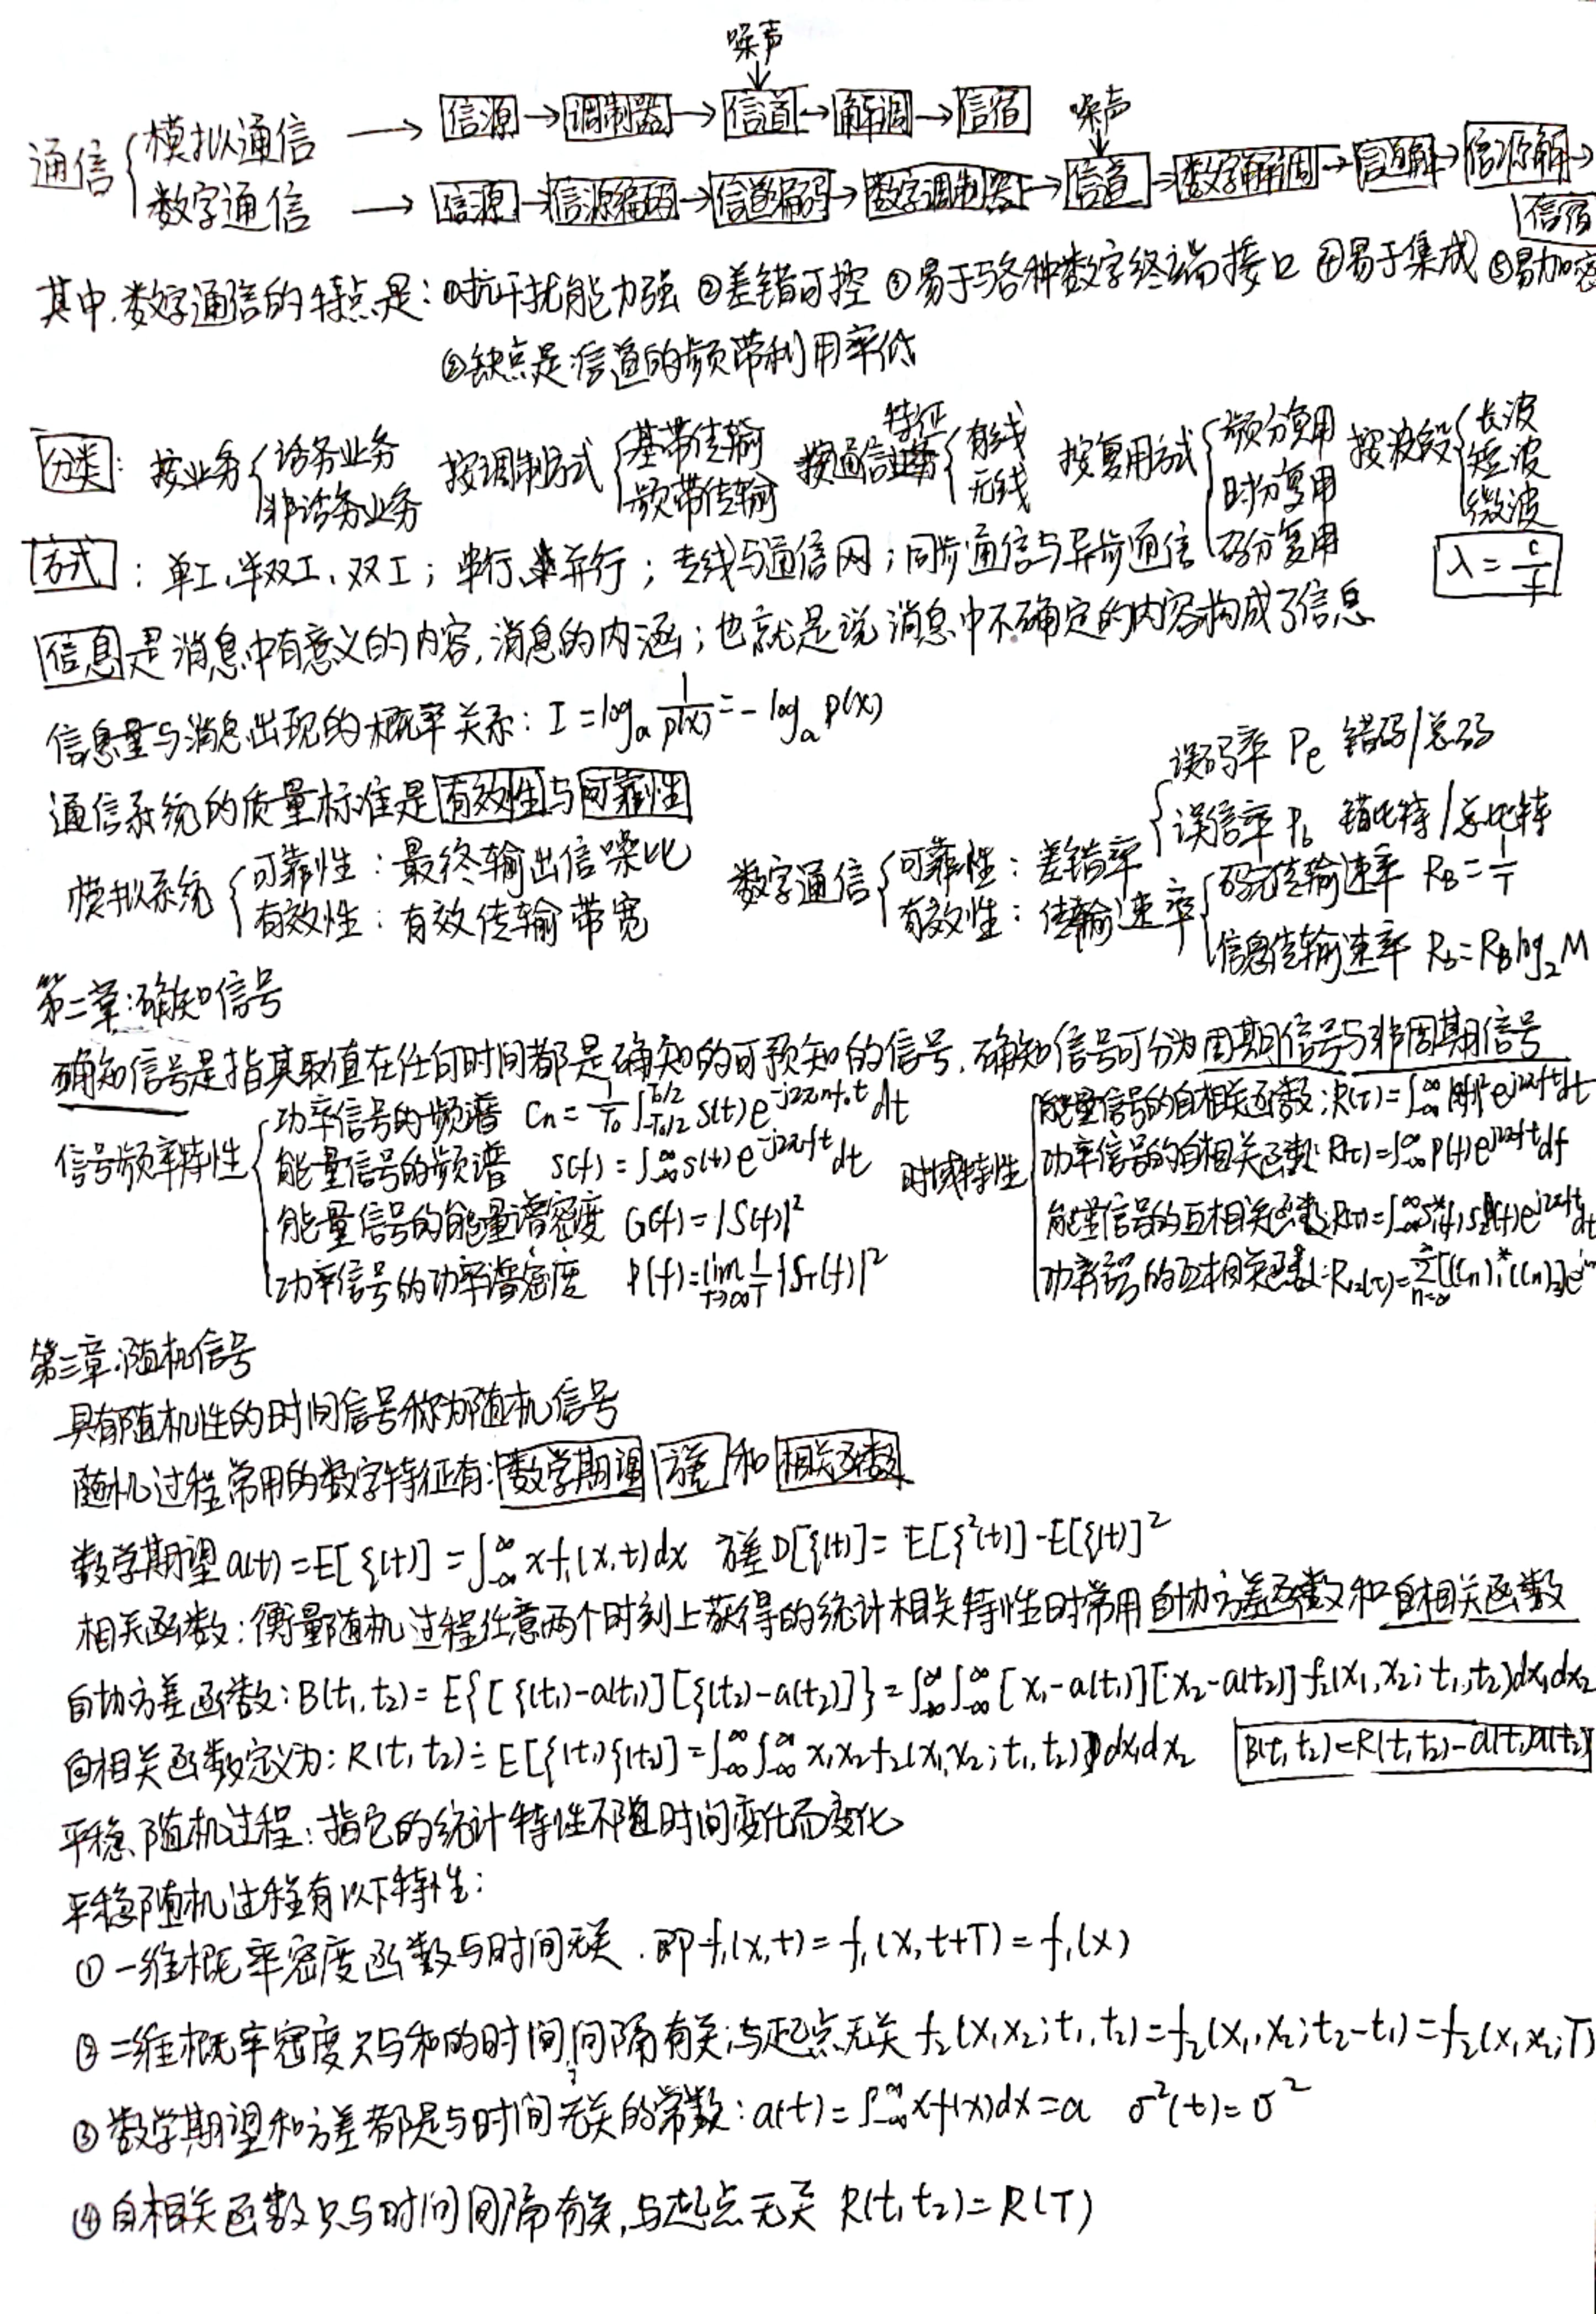 噪声
通信 { 模拟通信 → 信源 → 调制器 → 信道 → 解调 → 信宿
噪声
数字通信 → 信源 → 信源编码 → 信道编码 → 数字调制器 → 信道 → 数字解调 → 信道解 → 信源解 →
信宿
其中,数字通信的特点是: ①抗干扰能力强 ②差错可控 ③易于与各种数字终端接口 ④易于集成 ⑤易加密
⑥缺点是信道的频带利用率低
分类: 按业务 { 话务业务 非话务业务 按调制方式 { 基带传输 频带传输 按通信特征 { 有线 无线 按复用方式 { 频分复用 时分复用 码分复用 按波段 { 长波 短波 微波
方式: 单工、半双工、双工; 串行、并行; 专线与通信网; 同步通信与异步通信 λ = c/f
信息是消息中有意义的内容,消息的内涵; 也就是说消息中不确定的内容构成了信息
信息量与消息出现的概率关系: I = log_a 1/p(x) = - log_a p(x)
通信系统的质量标准是有效性与可靠性
模拟系统 { 可靠性: 最终输出信噪比
有效性: 有效传输带宽
数字通信 { 可靠性: 差错率 { 误码率 Pe 错码/总码
误信率 Pb 错比特/总比特
有效性: 传输速率 { 码元传输速率 R_B = 1/T
信息传输速率 R_b = R_B log_2 M
第二章:确知信号
确知信号是指其取值在任何时间都是确知的可预知的信号,确知信号可分为周期信号与非周期信号
信号频率特性 { 功率信号的频谱 Cn = 1/T0 ∫_{-T0/2}^{T0/2} s(t) e^{-j2πnf0t} dt
能量信号的频谱 S(f) = ∫_{-∞}^{∞} s(t) e^{-j2πft} dt
能量信号的能量谱密度 G(f) = |S(f)|²
功率信号的功率谱密度 P(f) = lim_{T→∞} 1/T |S_T(f)|²
时域特性 { 能量信号的自相关函数: R(τ) = ∫_{-∞}^{∞} |S(f)|² e^{j2πft} dt
功率信号的自相关函数: R(τ) = ∫_{-∞}^{∞} P(f) e^{j2πft} df
能量信号的互相关函数: R(τ) = ∫_{-∞}^{∞} S₁*(f) S₂(f) e^{j2πft} dt
功率信号的互相关函数: R₁₂(τ) = Σ_{n=-∞}^{∞} [(Cn)₁* (Cn)₂] e^{j
第三章:随机信号
具有随机性的时间信号称为随机信号
随机过程常用的数字特征有: 数学期望 方差 和 相关函数
数学期望 a(t) = E[ξ(t)] = ∫_{-∞}^{∞} x f₁(x,t) dx 方差 D[ξ(t)] = E[ξ²(t)] - E[ξ(t)]²
相关函数: 衡量随机过程任意两个时刻上获得的统计相关特性时常用自协方差函数和自相关函数
自协方差函数: B(t₁,t₂) = E{[ξ(t₁)-a(t₁)][ξ(t₂)-a(t₂)]} = ∫_{-∞}^{∞}∫_{-∞}^{∞} [x₁-a(t₁)][x₂-a(t₂)] f₂(x₁,x₂;t₁,t₂) dx₁dx₂
自相关函数定义为: R(t₁,t₂) = E[ξ(t₁)ξ(t₂)] = ∫_{-∞}^{∞}∫_{-∞}^{∞} x₁x₂ f₂(x₁,x₂;t₁,t₂) dx₁dx₂ B(t₁,t₂) = R(t₁,t₂) - a(t₁)a(t₂)
平稳随机过程: 指它的统计特性不随时间变化而变化
平稳随机过程有以下特性:
① 一维概率密度函数与时间无关. 即 f₁(x,t) = f₁(x,t+T) = f₁(x)
② 二维概率密度只与和的时间间隔有关,与起点无关 f₂(x₁,x₂;t₁,t₂) = f₂(x₁,x₂;t₂-t₁) = f₂(x₁,x₂;T)
③ 数学期望和方差都是与时间无关的常数: a(t) = ∫_{-∞}^{∞} x f(x) dx = a σ²(t) = σ²
④ 自相关函数只与时间间隔有关,与起点无关 R(t₁,t₂) = R(T)